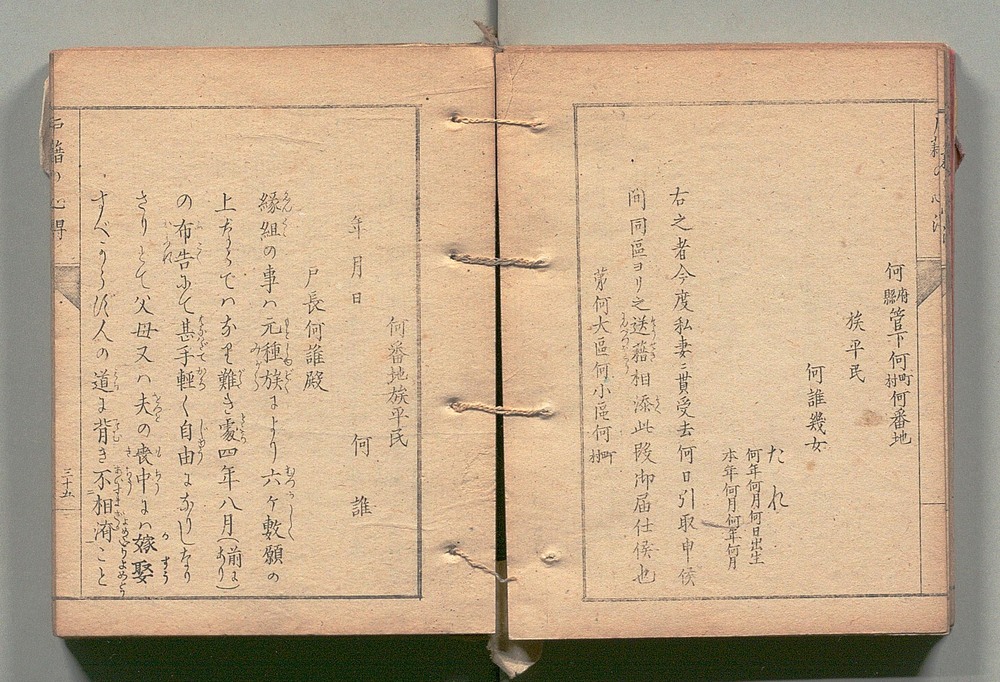 何府縣管下何町村何番地
族平民
何誰幾女
たれ
何年何月何日出生
本年何月何年何月
右之者今度私妻ニ貰受去何日引取申候
間同區ヨリ之送籍相添此段御届仕候也
第何大區何小區何町村
何番地族平民
何誰
年月日
戸長何誰殿
縁組の事ハ元種族により六ケ敷願の
上ならでハなり難き處四年八月(前にあり)
の布告にて甚手輕く自由になりしなり
さりとて父母又ハ夫の喪中にハ嫁娶
すべからず人の道に背き不相濟こと
戸籍の心得
三十五